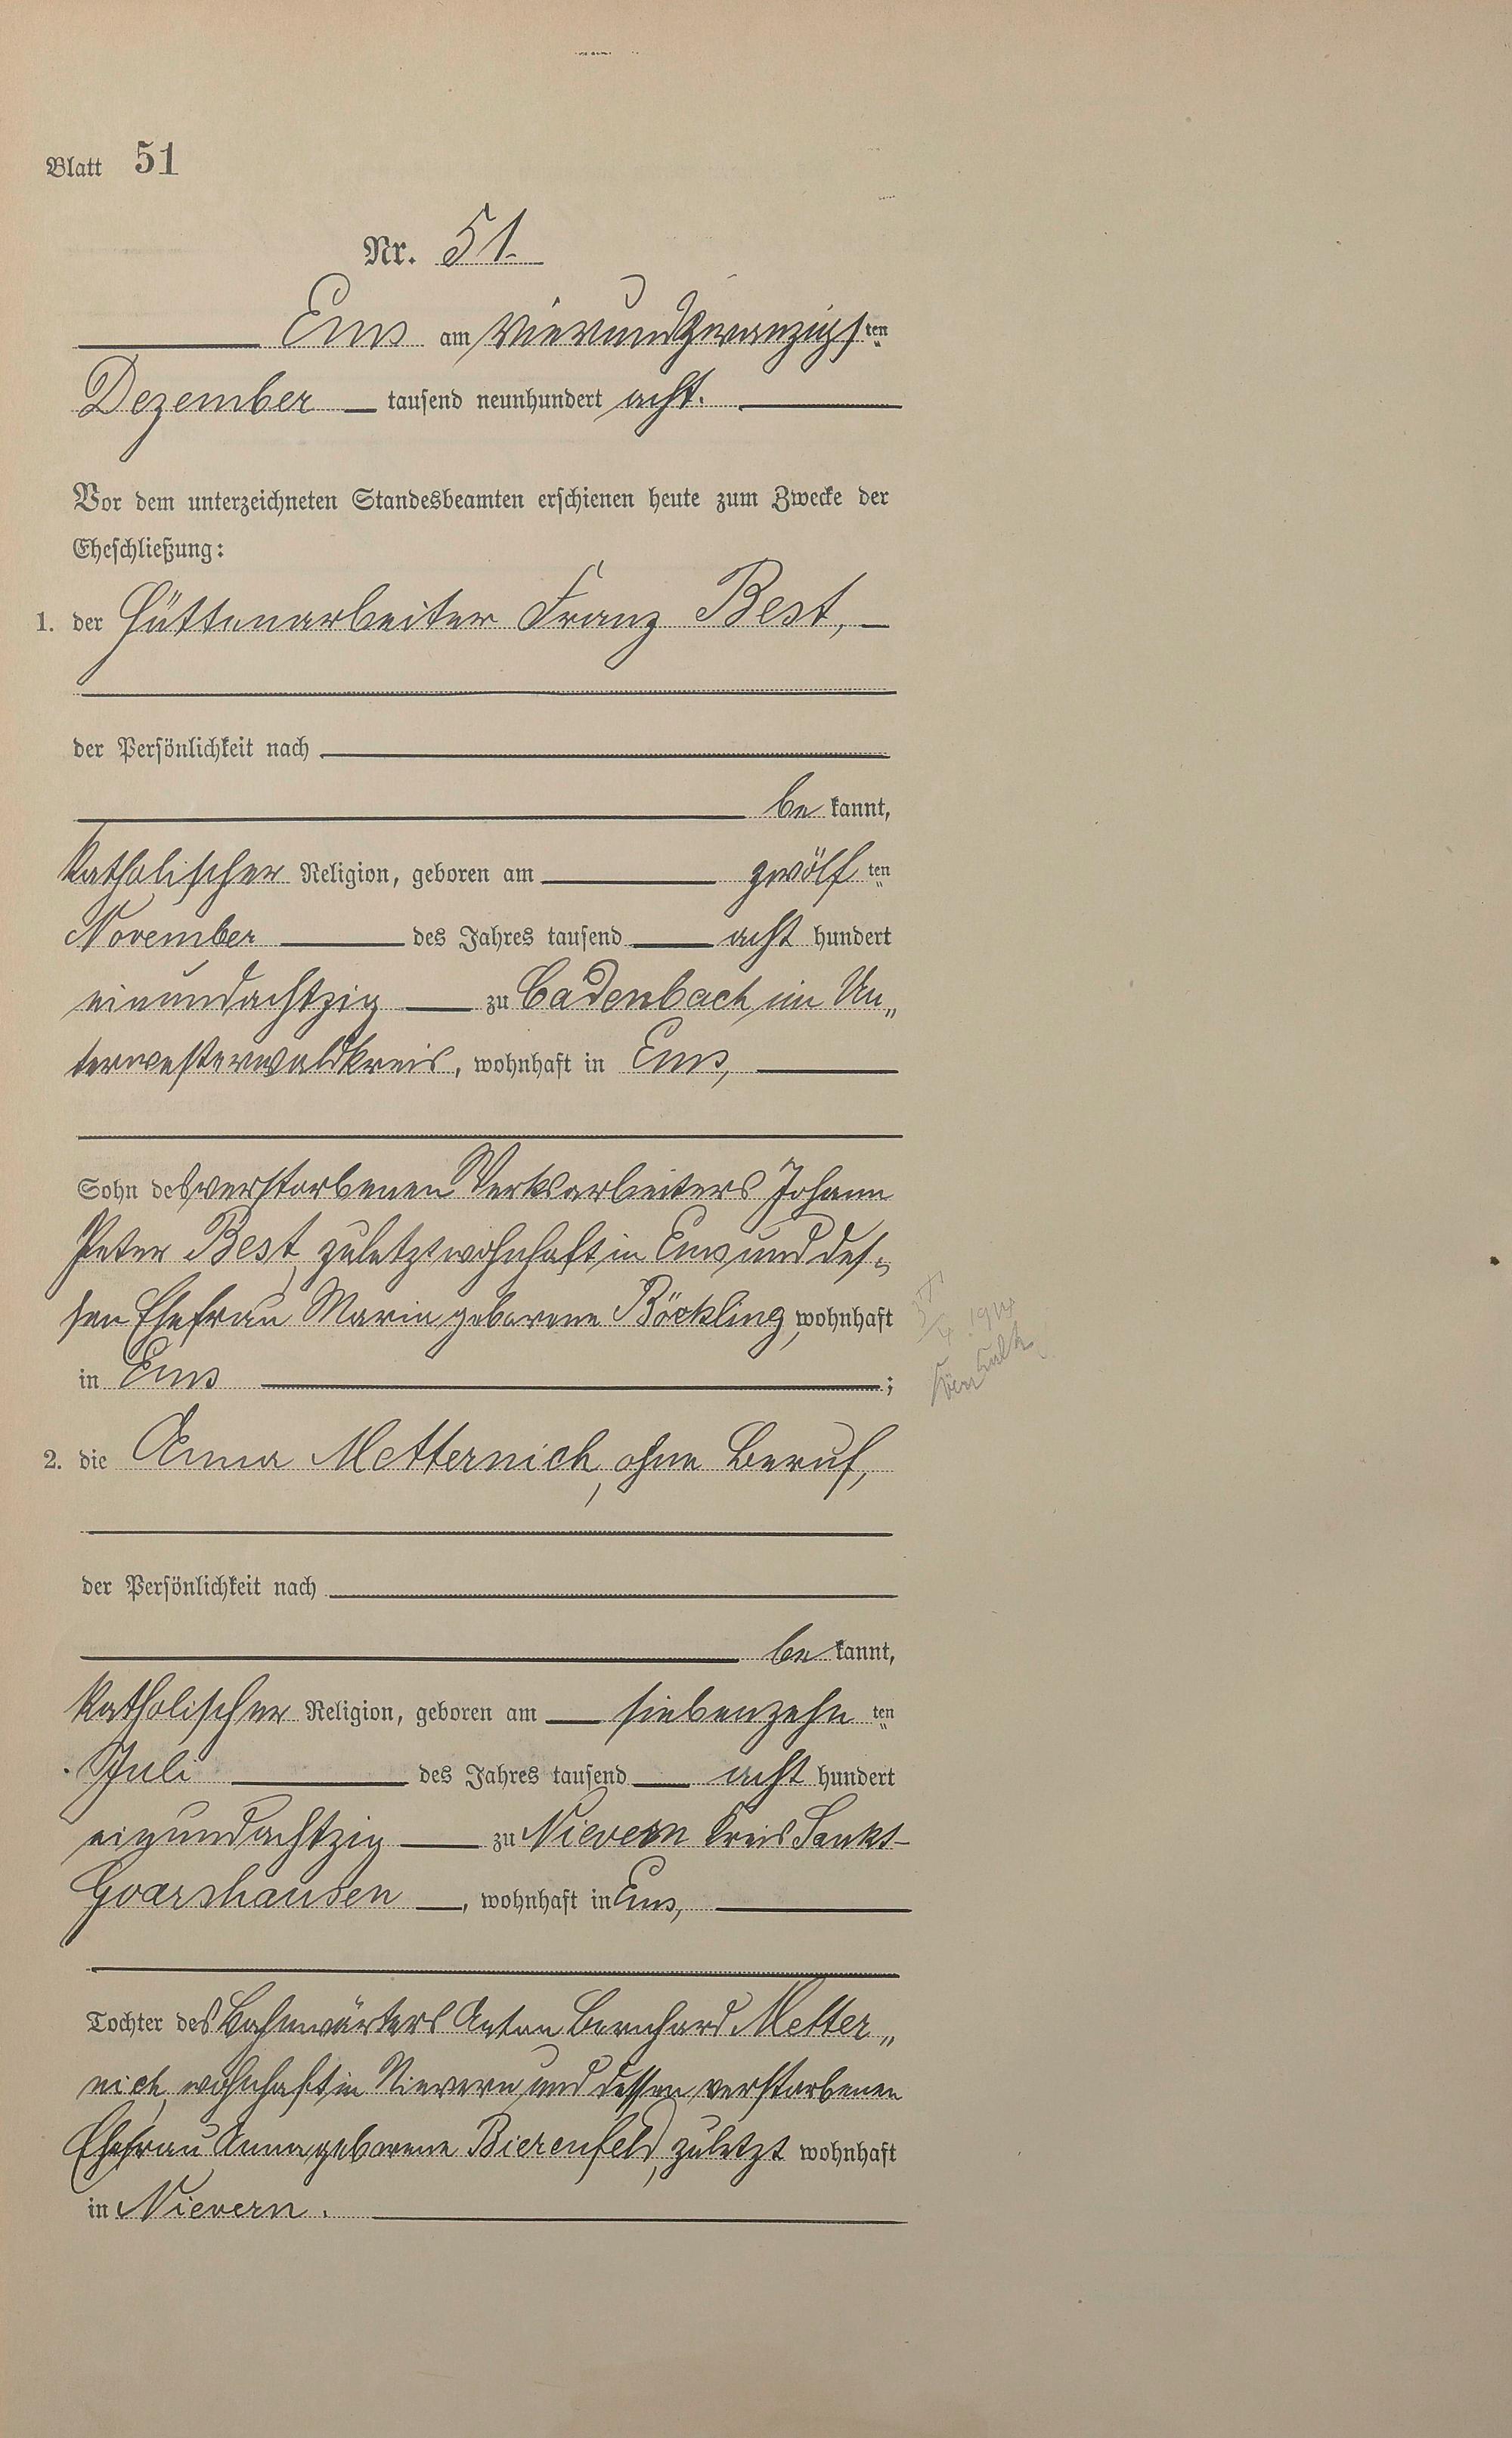 Blatt 51
Nr. 51.
Ems am vierundzwanzigsten
Dezember tausend neunhundert acht.
Vor dem unterzeichneten Standesbeamten erschienen heute zum Zwecke der
Eheschließung:
1. der Hüttenarbeiter Franz Best,
der Persönlichkeit nach
be kannt,
katholischer Religion, geboren am zwölf ten
November des Jahres tausend acht hundert
einundachtzig zu Cadenbach im Un„
terwesterwaldkreis, wohnhaft in Ems,
Sohn des verstorbenen Werksarbeiters Johann
Peter Best, zuletzt wohnhaft in Ems und des„
sen Ehefrau Maria geborene Böckling, wohnhaft
in Ems ;
2. die Anna Metternich, ohne Beruf,
der Persönlichkeit nach
be kannt,
katholischer Religion, geboren am siebenzehn ten
Juli des Jahres tausend acht hundert
einundachtzig zu Nievern Kreis Sankt-
Goarshausen, wohnhaft in Ems,
Tochter des Bahnwärters Anton Bernhard Metter„
nich, wohnhaft in Nievern und dessen verstorbenen
Ehefrau Anna geborene Bierenfeld, zuletzt wohnhaft
in Nievern.